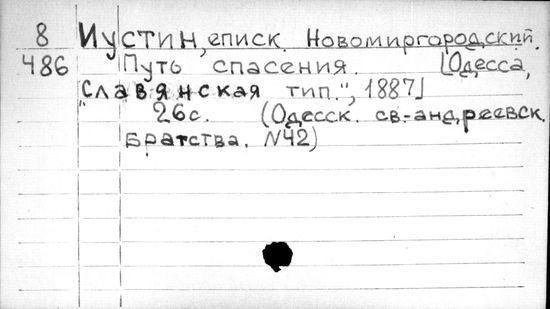 8 Иустин, еписк. Новомиргородский.
486 Путь спасения. [Одесса,
"Славянская тип.", 1887]
26с. (Одесск. св.-андреевск.
Братства. N42)